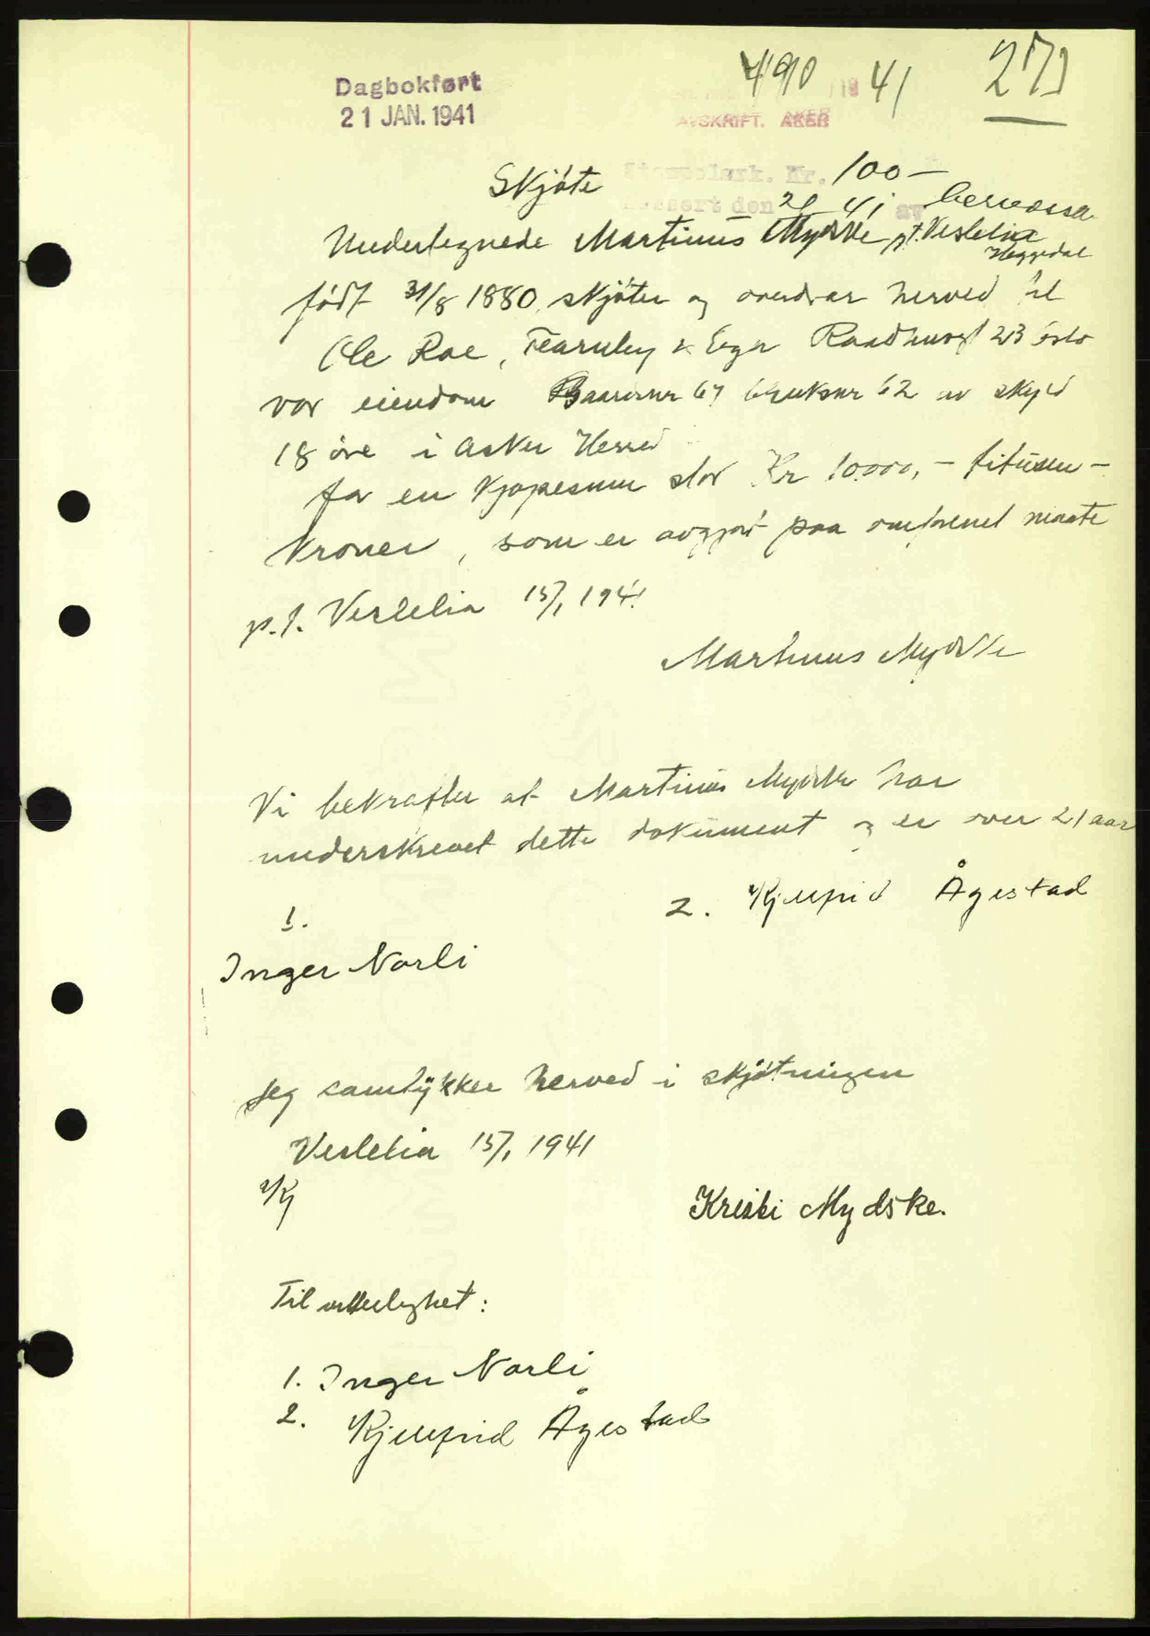 Dagbokført
21 JAN. 1941
490 41
271
AVSKRIFT. AKER
Stempelmrk. Kr. 100 –
Kassert den 21 / 1 41 av
Skjøte
Undertegnede Martinius Mydske pt. Veslelia
Heggedal
født 31/8 1880 skjøter og overdrar herved til
Ole Roe, Fearnley & Eger Raadhusgt 23 Oslo
vor eiendom Gaardsnr 67 bruksnr 62 av skyld
18 øre i Asker Herred
for en Kjøpesum stor Kr 10.000,– titusen –
Kroner, som er avgjort paa omforenet maate
p.t. Veslelia 15/1 1941
Martinius Mydske
Vi bekrefter at Martinius Mydske har
underskrevet dette dokument og er over 21 aar
1.
2. Kjellfrid Ågestad
Inger Norli
Jeg samtykker herved i skjøtningen
Veslelia 15/1 1941
Kristi Mydske.
Til vitterlighet:
1. Inger Norli
2. Kjellfrid Ågestad